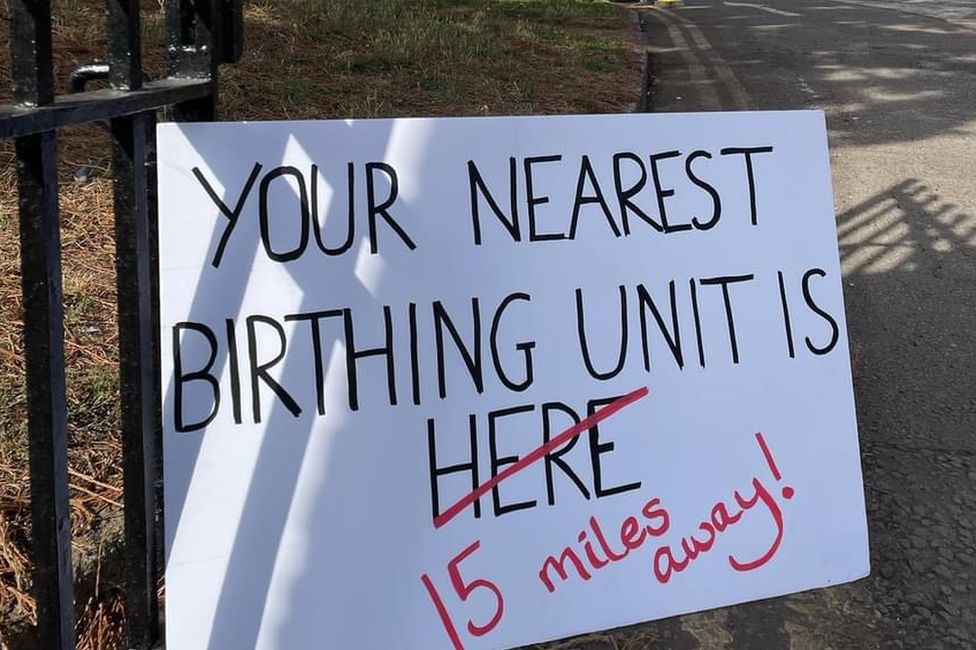 YOUR NEAREST
BIRTHING UNIT IS
HERE
15 miles
away!